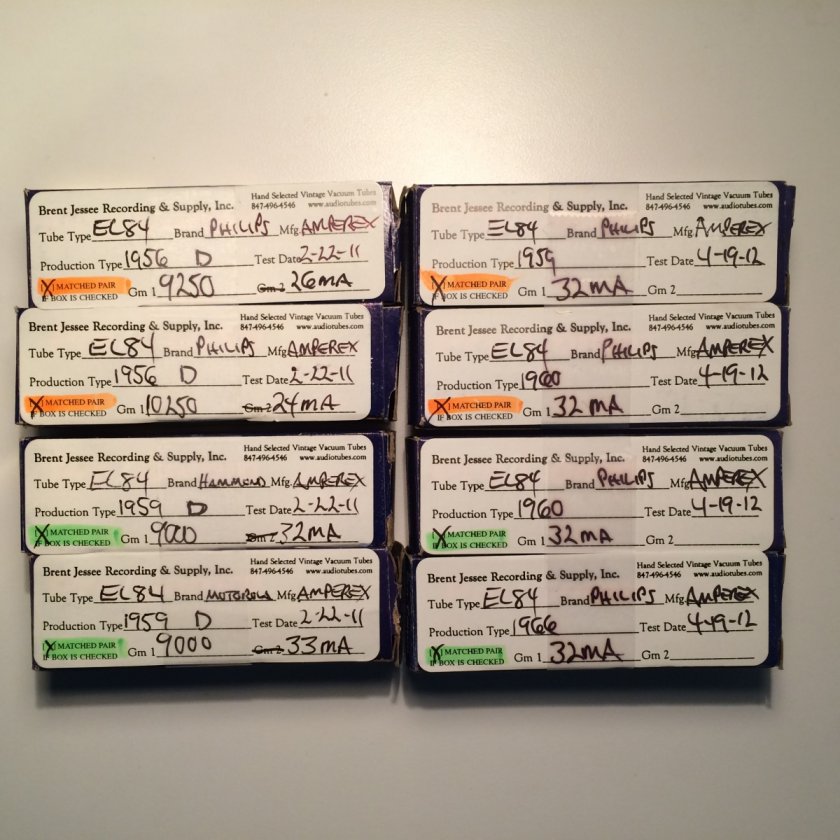 Brent Jessee Recording & Supply, Inc. Hand Selected Vintage Vacuum Tubes
847-496-4546 www.audiotubes.com
Tube Type EL84 Brand PHILIPS Mfg AMPEREX
Production Type 1956 D Test Date 2-22-11
[X] MATCHED PAIR
IF BOX IS CHECKED Gm 1 9250 Gm 2 26MA
Brent Jessee Recording & Supply, Inc. Hand Selected Vintage Vacuum Tubes
847-496-4546 www.audiotubes.com
Tube Type EL84 Brand PHILIPS Mfg AMPEREX
Production Type 1956 D Test Date 2-22-11
[X] MATCHED PAIR
IF BOX IS CHECKED Gm 1 10250 Gm 2 24MA
Brent Jessee Recording & Supply, Inc. Hand Selected Vintage Vacuum Tubes
847-496-4546 www.audiotubes.com
Tube Type EL84 Brand HAMMOND Mfg. AMPEREX
Production Type 1959 D Test Date 2-22-11
[X] MATCHED PAIR
IF BOX IS CHECKED Gm 1 9000 Gm 2 32MA
Brent Jessee Recording & Supply, Inc. Hand Selected Vintage Vacuum Tubes
847-496-4546 www.audiotubes.com
Tube Type EL84 Brand MOTOROLA Mfg AMPEREX
Production Type 1959 D Test Date 2-22-11
[X] MATCHED PAIR
IF BOX IS CHECKED Gm 1 9000 Gm 2 33MA
Brent Jessee Recording & Supply, Inc. Hand Selected Vintage Vacuum Tubes
847-496-4546 www.audiotubes.com
Tube Type EL84 Brand PHILIPS Mfg AMPEREX
Production Type 1959 Test Date 4-19-12
[X] MATCHED PAIR
IF BOX IS CHECKED Gm 1 32MA Gm 2
Brent Jessee Recording & Supply, Inc. Hand Selected Vintage Vacuum Tubes
847-496-4546 www.audiotubes.com
Tube Type EL84 Brand PHILIPS Mfg AMPEREX
Production Type 1960 Test Date 4-19-12
[X] MATCHED PAIR
IF BOX IS CHECKED Gm 1 32MA Gm 2
Brent Jessee Recording & Supply, Inc. Hand Selected Vintage Vacuum Tubes
847-496-4546 www.audiotubes.com
Tube Type EL84 Brand PHILIPS Mfg AMPEREX
Production Type 1960 Test Date 4-19-12
[X] MATCHED PAIR
IF BOX IS CHECKED Gm 1 32MA Gm 2
Brent Jessee Recording & Supply, Inc. Hand Selected Vintage Vacuum Tubes
847-496-4546 www.audiotubes.com
Tube Type EL84 Brand PHILIPS Mfg AMPEREX
Production Type 1966 Test Date 4-19-12
[X] MATCHED PAIR
IF BOX IS CHECKED Gm 1 32MA Gm 2